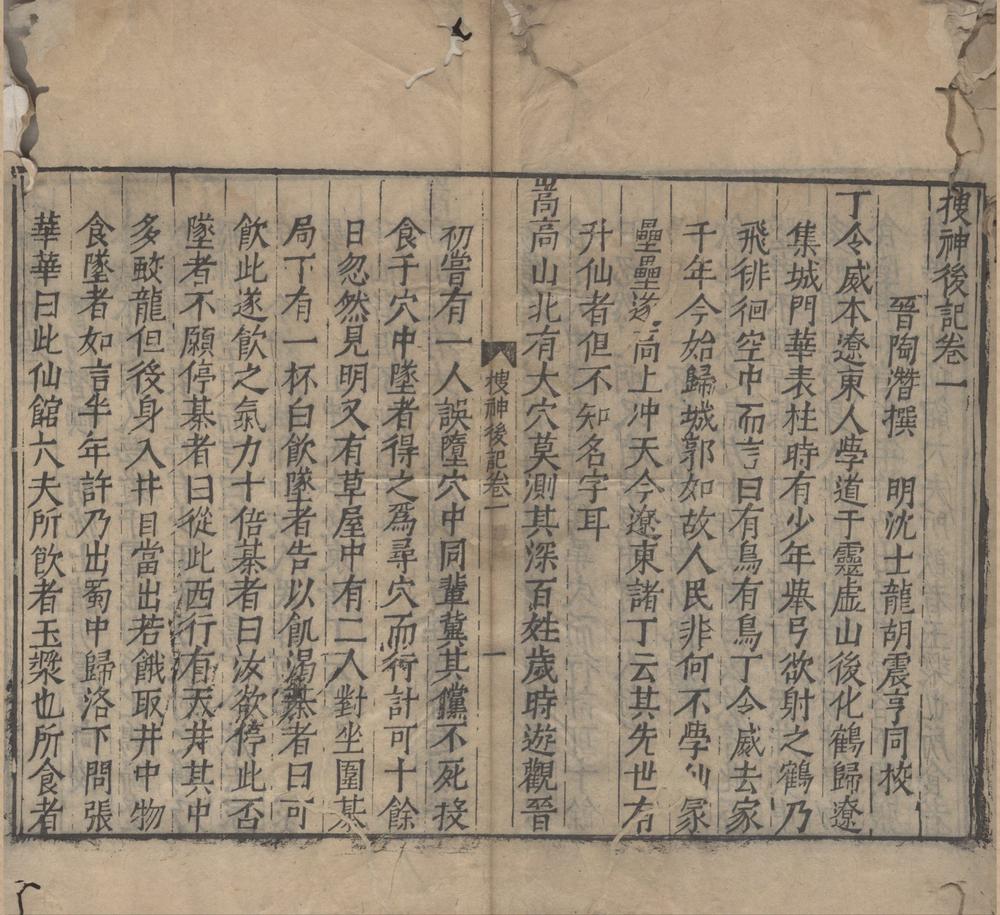 搜神後記卷一
晉陶潛撰　明沈士龍胡震亨同校
丁令威本遼東人學道于靈虛山後化鶴歸遼
集城門華表柱時有少年舉弓欲射之鶴乃
飛徘徊空中而言曰有鳥有鳥丁令威去家
千年今始歸城郭如故人民非何不學仙冡
壘壘遂高上冲天今遼東諸丁云其先世有
升仙者但不知名字耳
嵩高山北有大穴莫測其深百姓歲時遊觀晉
搜神後記卷一
一
初嘗有一人誤墮穴中同輩冀其儻不死投
食于穴中墜者得之爲尋穴而行計可十餘
日忽然見明又有草屋中有二人對坐圍棊
局下有一杯白飲墜者告以飢渴棊者曰可
飲此遂飲之氣力十倍棊者曰汝欲停此否
墜者不願停棊者曰從此西行有天井其中
多蛟龍但後身入井自當出若餓取井中物
食墜者如言半年許乃出蜀中歸洛下問張
華華曰此仙館六夫所飲者玉漿也所食者